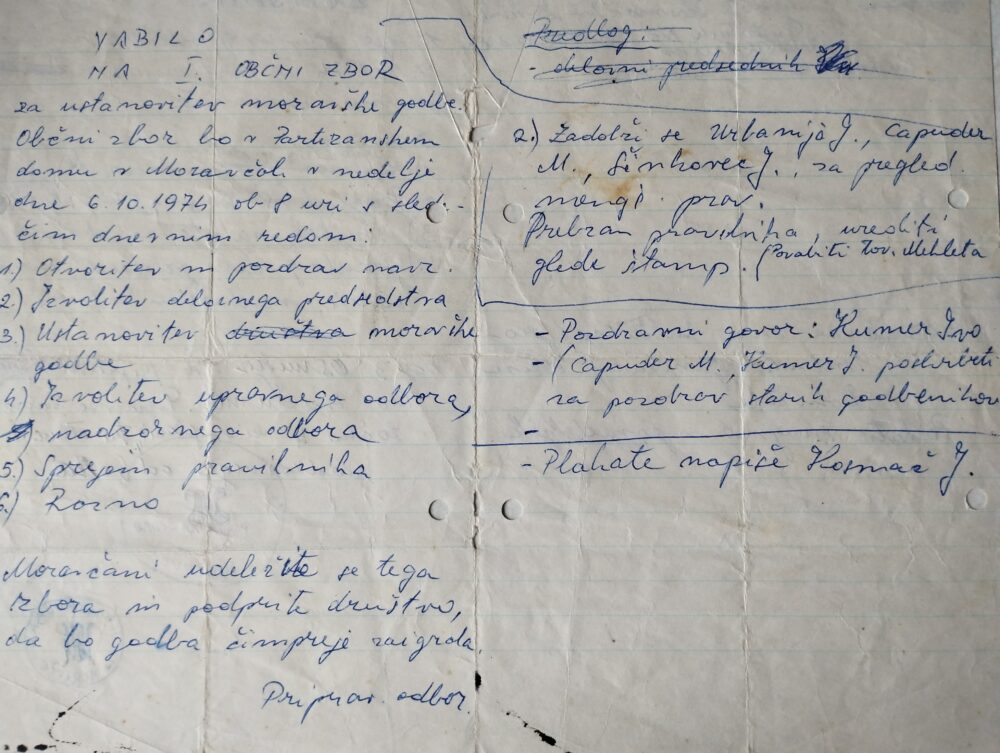 VABILO
NA I. OBČNI ZBOR
za ustanovitev moravške godbe.
Občni zbor bo v Partizanskem
domu v Moravčah v nedelje
dne 6.10.1974 ob 8 uri s sled-
čim dnevnim redom:
1.) Otvoritev in pozdrav navz.
2.) Izvolitev delovnega predsedstva
3.) Ustanovitev društva moravške
godbe
4.) Izvolitev upravnega odbora,
nadzornega odbora
5.) Sprejem pravilnika
6.) Razno
Moravčani udeležite se tega
zbora in podprite društvo,
da bo godba čimpreje zaigrala.
Priprav. odbor.
Predlog:
- delovni predsednik
2.) Zadolži se Urbanija J., Capuder
M., Šinkovec J., za pregled
mengš. prav.
Prebran pravilnika, urediti
glede štamp. (Povabiti tov. Mehleta
- Pozdravni govor: Kumer Ivo
- (Capuder M., Kumer J. poskrbeti
za pozdrav starih godbenikov
-
- Plakate napiše Kosmač J.